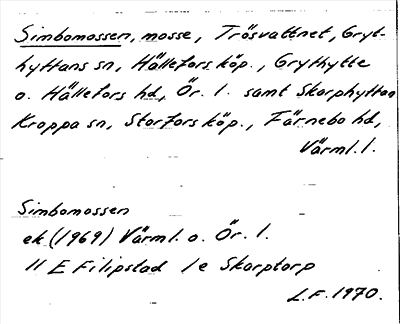 Simbomossen, mosse, Trösvattnet, Gryt-
hyttans sn, Hällefors köp., Grythytte
o. Hällefors hd, Ör. l. samt Skarphyttan
Kroppa sn, Storfors köp., Färnebo hd,
Värml. l.
Simbomossen
ek (1969) Värml. o. Ör. l.
11 E Filipstad 1e Skarptorp
L.F. 1970.